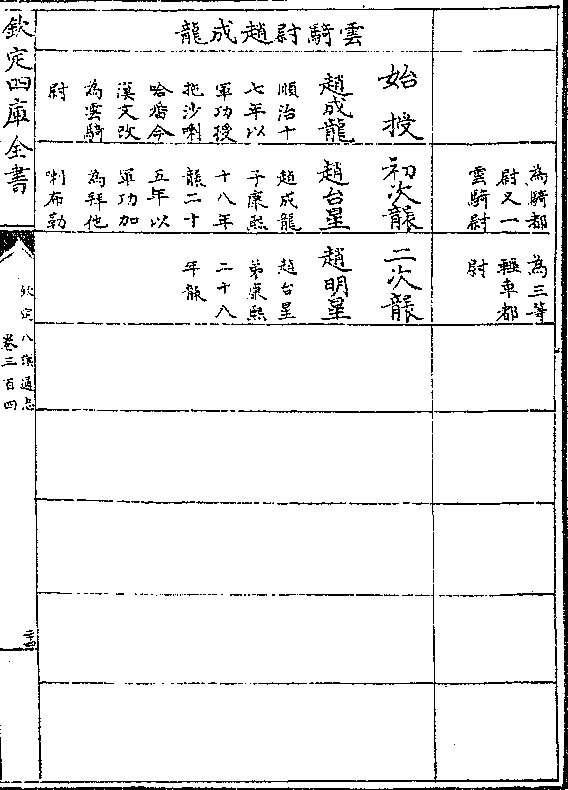 為騎都
尉又一
雲騎尉
為三等
輕車都
尉
雲騎尉趙成龍
始授
趙成龍
順治十
七年以
軍功授
拖沙喇
哈番今
漢文改
為雲騎
尉
初次襲
趙台星
趙成龍
子康熙
十八年
襲二十
五年以
軍功加
為拜他
喇布勒
二次襲
趙明星
趙台星
弟康熙
二十八
年襲
欽定四庫全書
欽定八旗通志
卷三百四